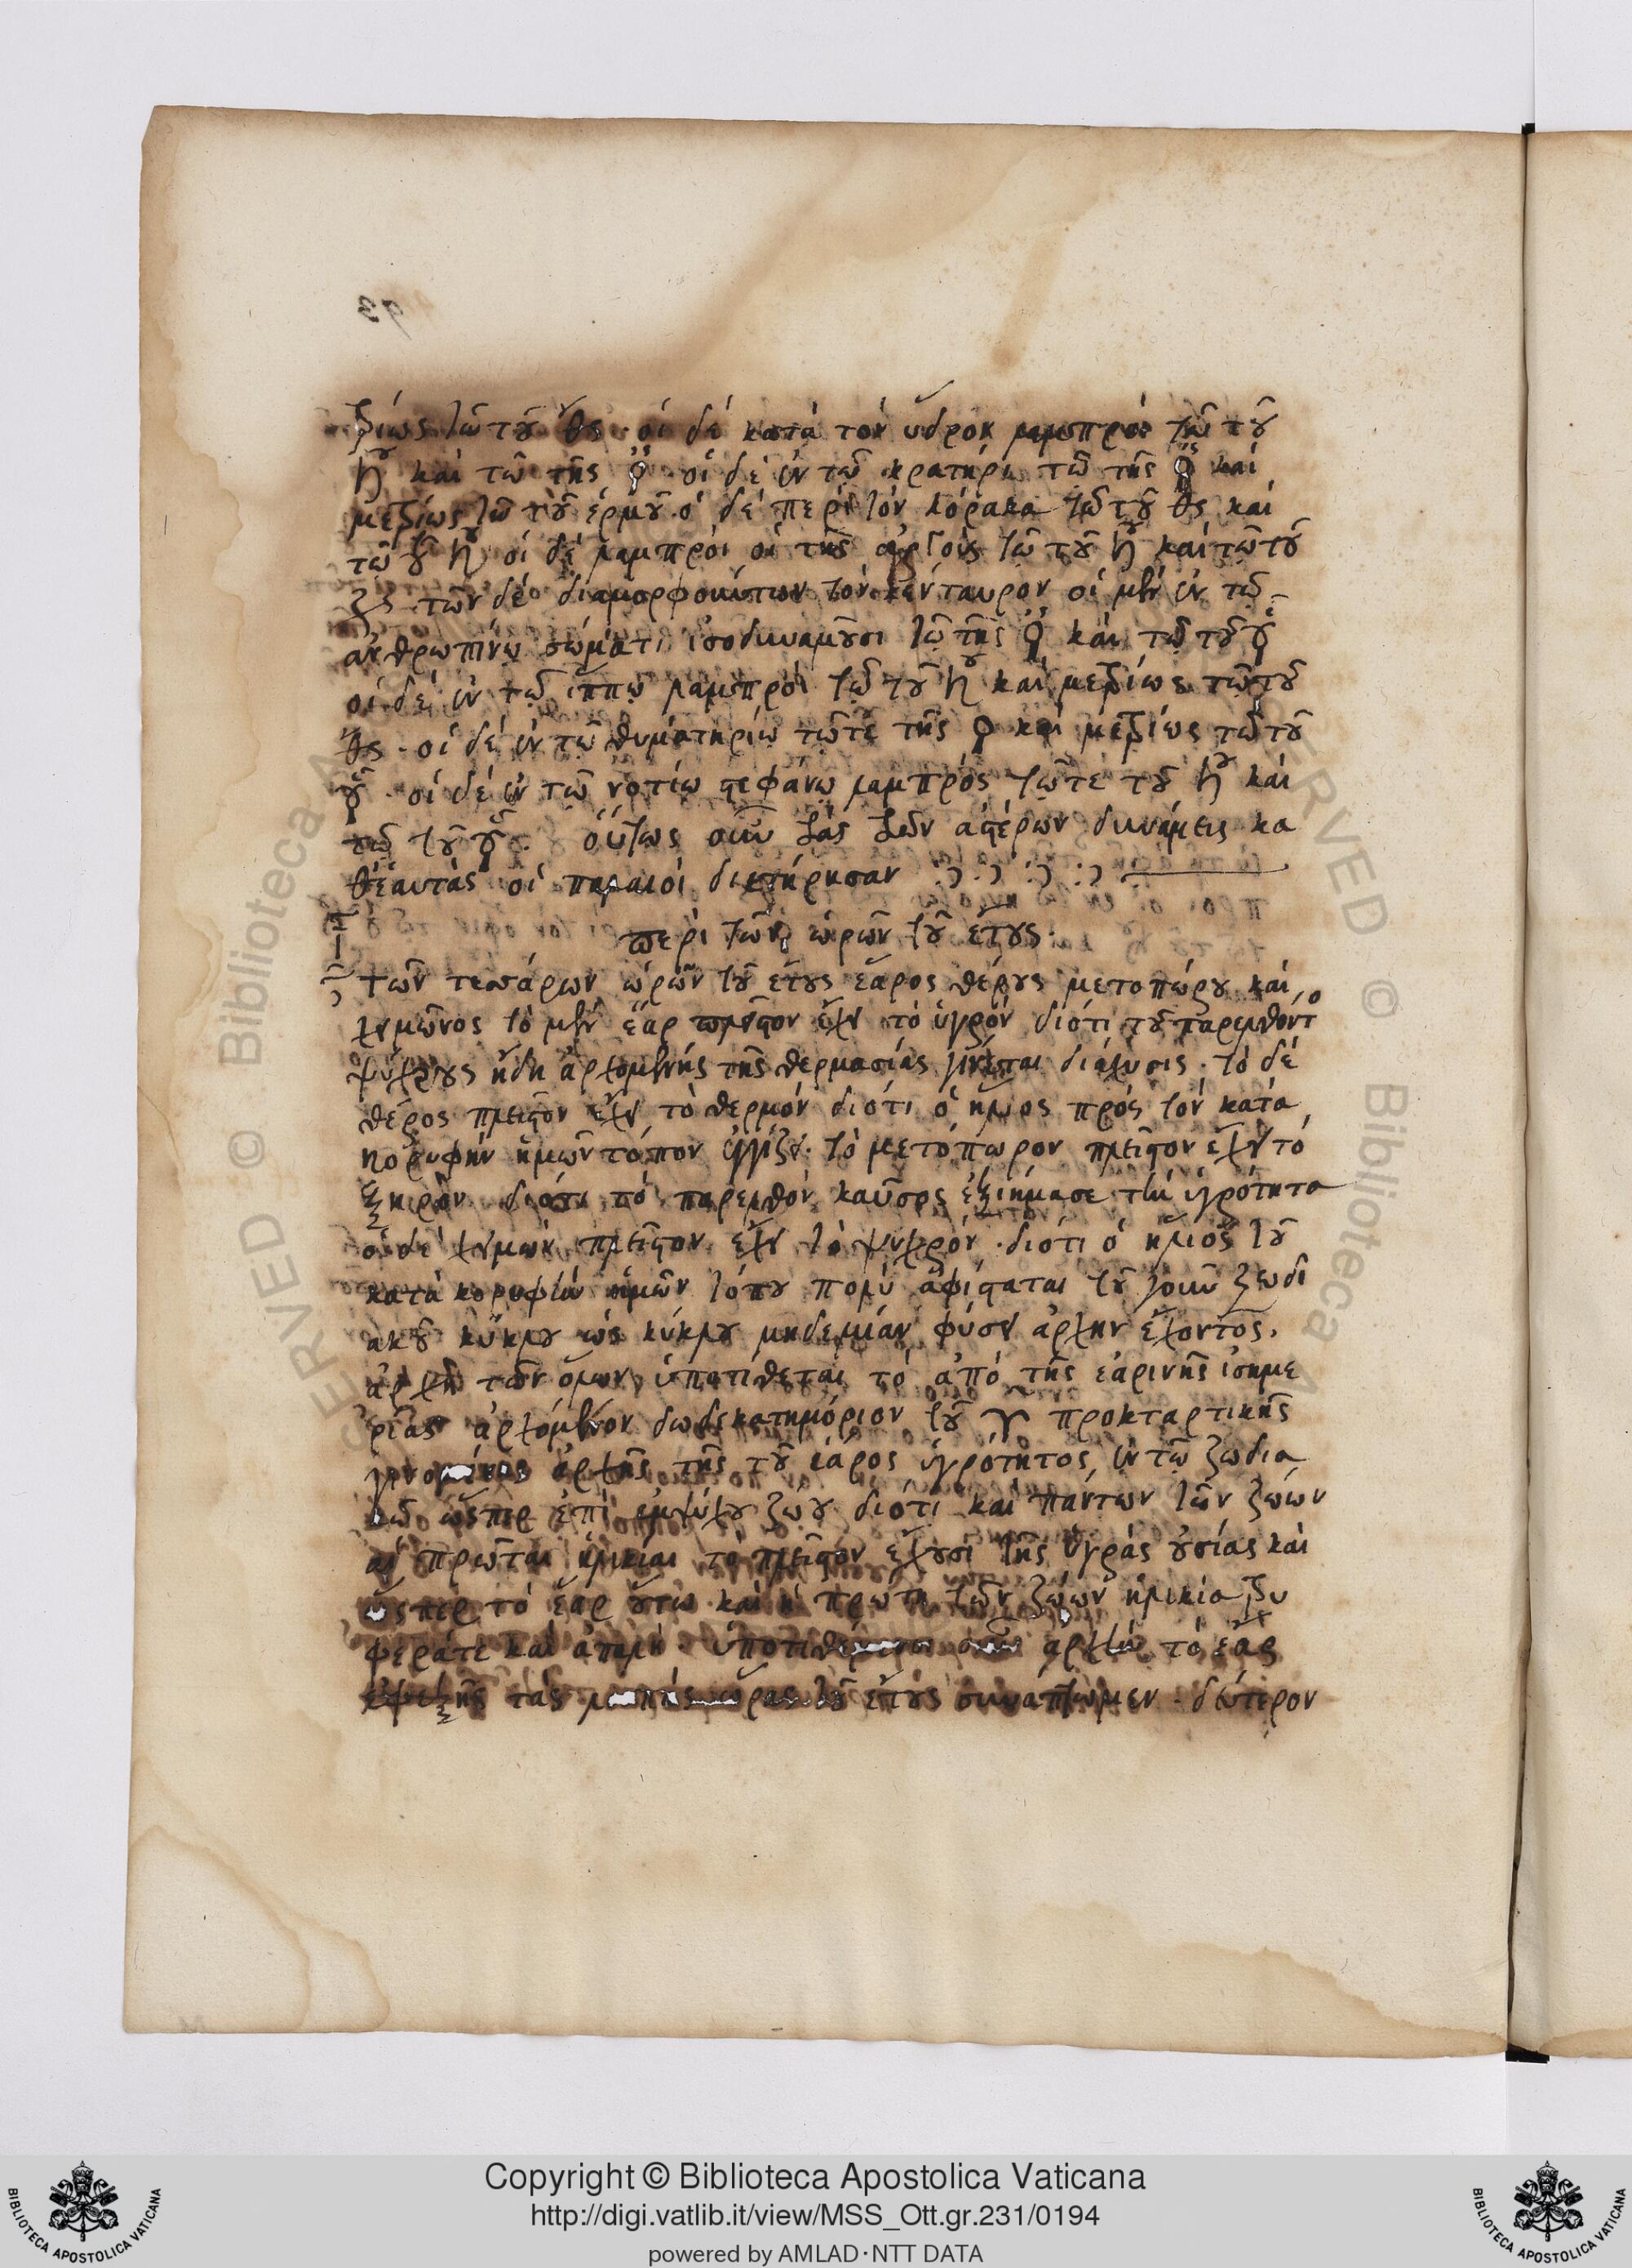 93
τρίως τῶ τοῦ ♄ς · οἱ δὲ κατὰ τὸν ὕδρον λαμπροὶ τῶ τοῦ
♄ καὶ τῶ τῆς ♀ · οἱ δὲ ἐν τῶ κρατῆρι τῶ τῆς ♀ καὶ
μετρίως τῶ τοῦ ἑρμοῦ · οἱ δὲ περὶ τὸν κόρακα τῶ τοῦ καὶ
τῶ τοῦ ♄ οἱ δὲ λαμπροὶ οἱ τῆς ἀργοῦς τῶ τοῦ ♄ καὶ τῶ τοῦ
τῶν δὲ διαμορφούντων τὸν κένταυρον οἱ μὲν ἐν τῶ
ἀνθρωπίνω σώματι ἰσοδυναμοῦσι τῶ τῆς ♀ καὶ τῶ τοῦ ☿
οἱ δὲ ἐν τῶ ἵππω λαμπροὶ τῶ τοῦ ♄ καὶ μετρίως τῶ τοῦ
οἱ δὲ ἐν τῶ θυματηρίω τῶ τε τῆς ♀ καὶ μετρίως τῶ τοῦ
☿ · οἱ δὲ ἐν τῶ νοτίω στεφάνω λαμπρὸς τῶ τε τοῦ ♄ καὶ
τῶ τοῦ ☿ · οὕτως οὖν τὰς τῶν ἀστέρων δυνάμεις κα
θἑαυτὰς οἱ παλαιοὶ διετήρησαν
περὶ τῶν ὡρῶν τοῦ ἔτους ·
των τεσσάρων ὡρῶν τοῦ ἔτους ἔαρος θέρους μετοπώρου καὶ
χειμῶνος τὸ μὲν ἔαρ πλεῖστον ἔχει τὸ ὑγρὸν διότι τοῦ παρελθόντο
ψύχους ἤδη ἀρχομένης τῆς θερμασίας γίνεται διάχυσις · τὸ δὲ
θέρος πλεῖστον ἔχει τὸ θερμὸν διότι ὁ ἥλιος πρὸς τὸν κατὰ
κορυφὴν ἡμῶν τόπον ἐγγίζει · τὸ μετόπωρον πλεῖστον ἔχει τὸ
ξηρὸν διότι τὸ παρελθὸν καῦσος τὴν ὑγρότητα
ὁ δὲ χειμὼν πλεῖστον ἔχει τὸ ψυχρόν · διότι ὁ ἥλιος τοῦ
κατὰ κορυφὴν ἡμῶν τόπου πολὺ ἀφίσταται τοῦ ζωδι
ακοῦ κύκλου ὡς κύκλου μηδεμίαν φύσει ἀρχην ἔχοντος,
ἀρχὴ τῶν ὅλων ὑποτίθεται τὸ ἀπὸ τῆς ἐαρινῆς ἰσημε
ρίας ἀρχόμενον δωδεκατημόριον τοῦ ♈ προκταρτικῆς
ἀρχῆς τῆς τοῦ ἔαρος ὑγρότητος ἐν τῶ ζωδια
κῶ ὥσπερ ἐπὶ ἐμψύχου ζώου διότι καὶ πάντων τῶν ζώων
αἱ πρῶται ἡλικίαι τὸ πλεῖστον ἔχουσι τῆς ὑγρᾶς οὐσίας καὶ
ὥσπερ τὸ ἔαρ οὕτω καὶ ἡ πρώτη τῶν ζώων ἡλικία τρυ
φερά τε καὶ ἁπαλὴ · οὖν ἀρχὴν τὸ ἔαρ
ἐφεξῆς τὰς ὥρας τοῦ ἔτους συνάπτωμεν · δεύτερον
Copyright © Biblioteca Apostolica Vaticana
http://digi.vatlib.it/view/MSS_Ott.gr.231/0194
powered by AMLAD·NTT DATA